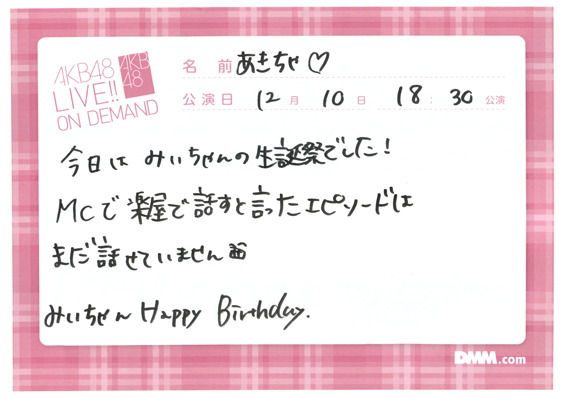 AKB48
LIVE!!
ON DEMAND
AKB
48
名 前 あきちゃ♡
公演日 12 月 10 日 18 : 30 公演
今日は みぃちゃんの生誕祭でした!
MCで楽屋で話すと言ったエピソードは
まだ話せていません
みぃちゃん Happy Birthday.
DMM.com